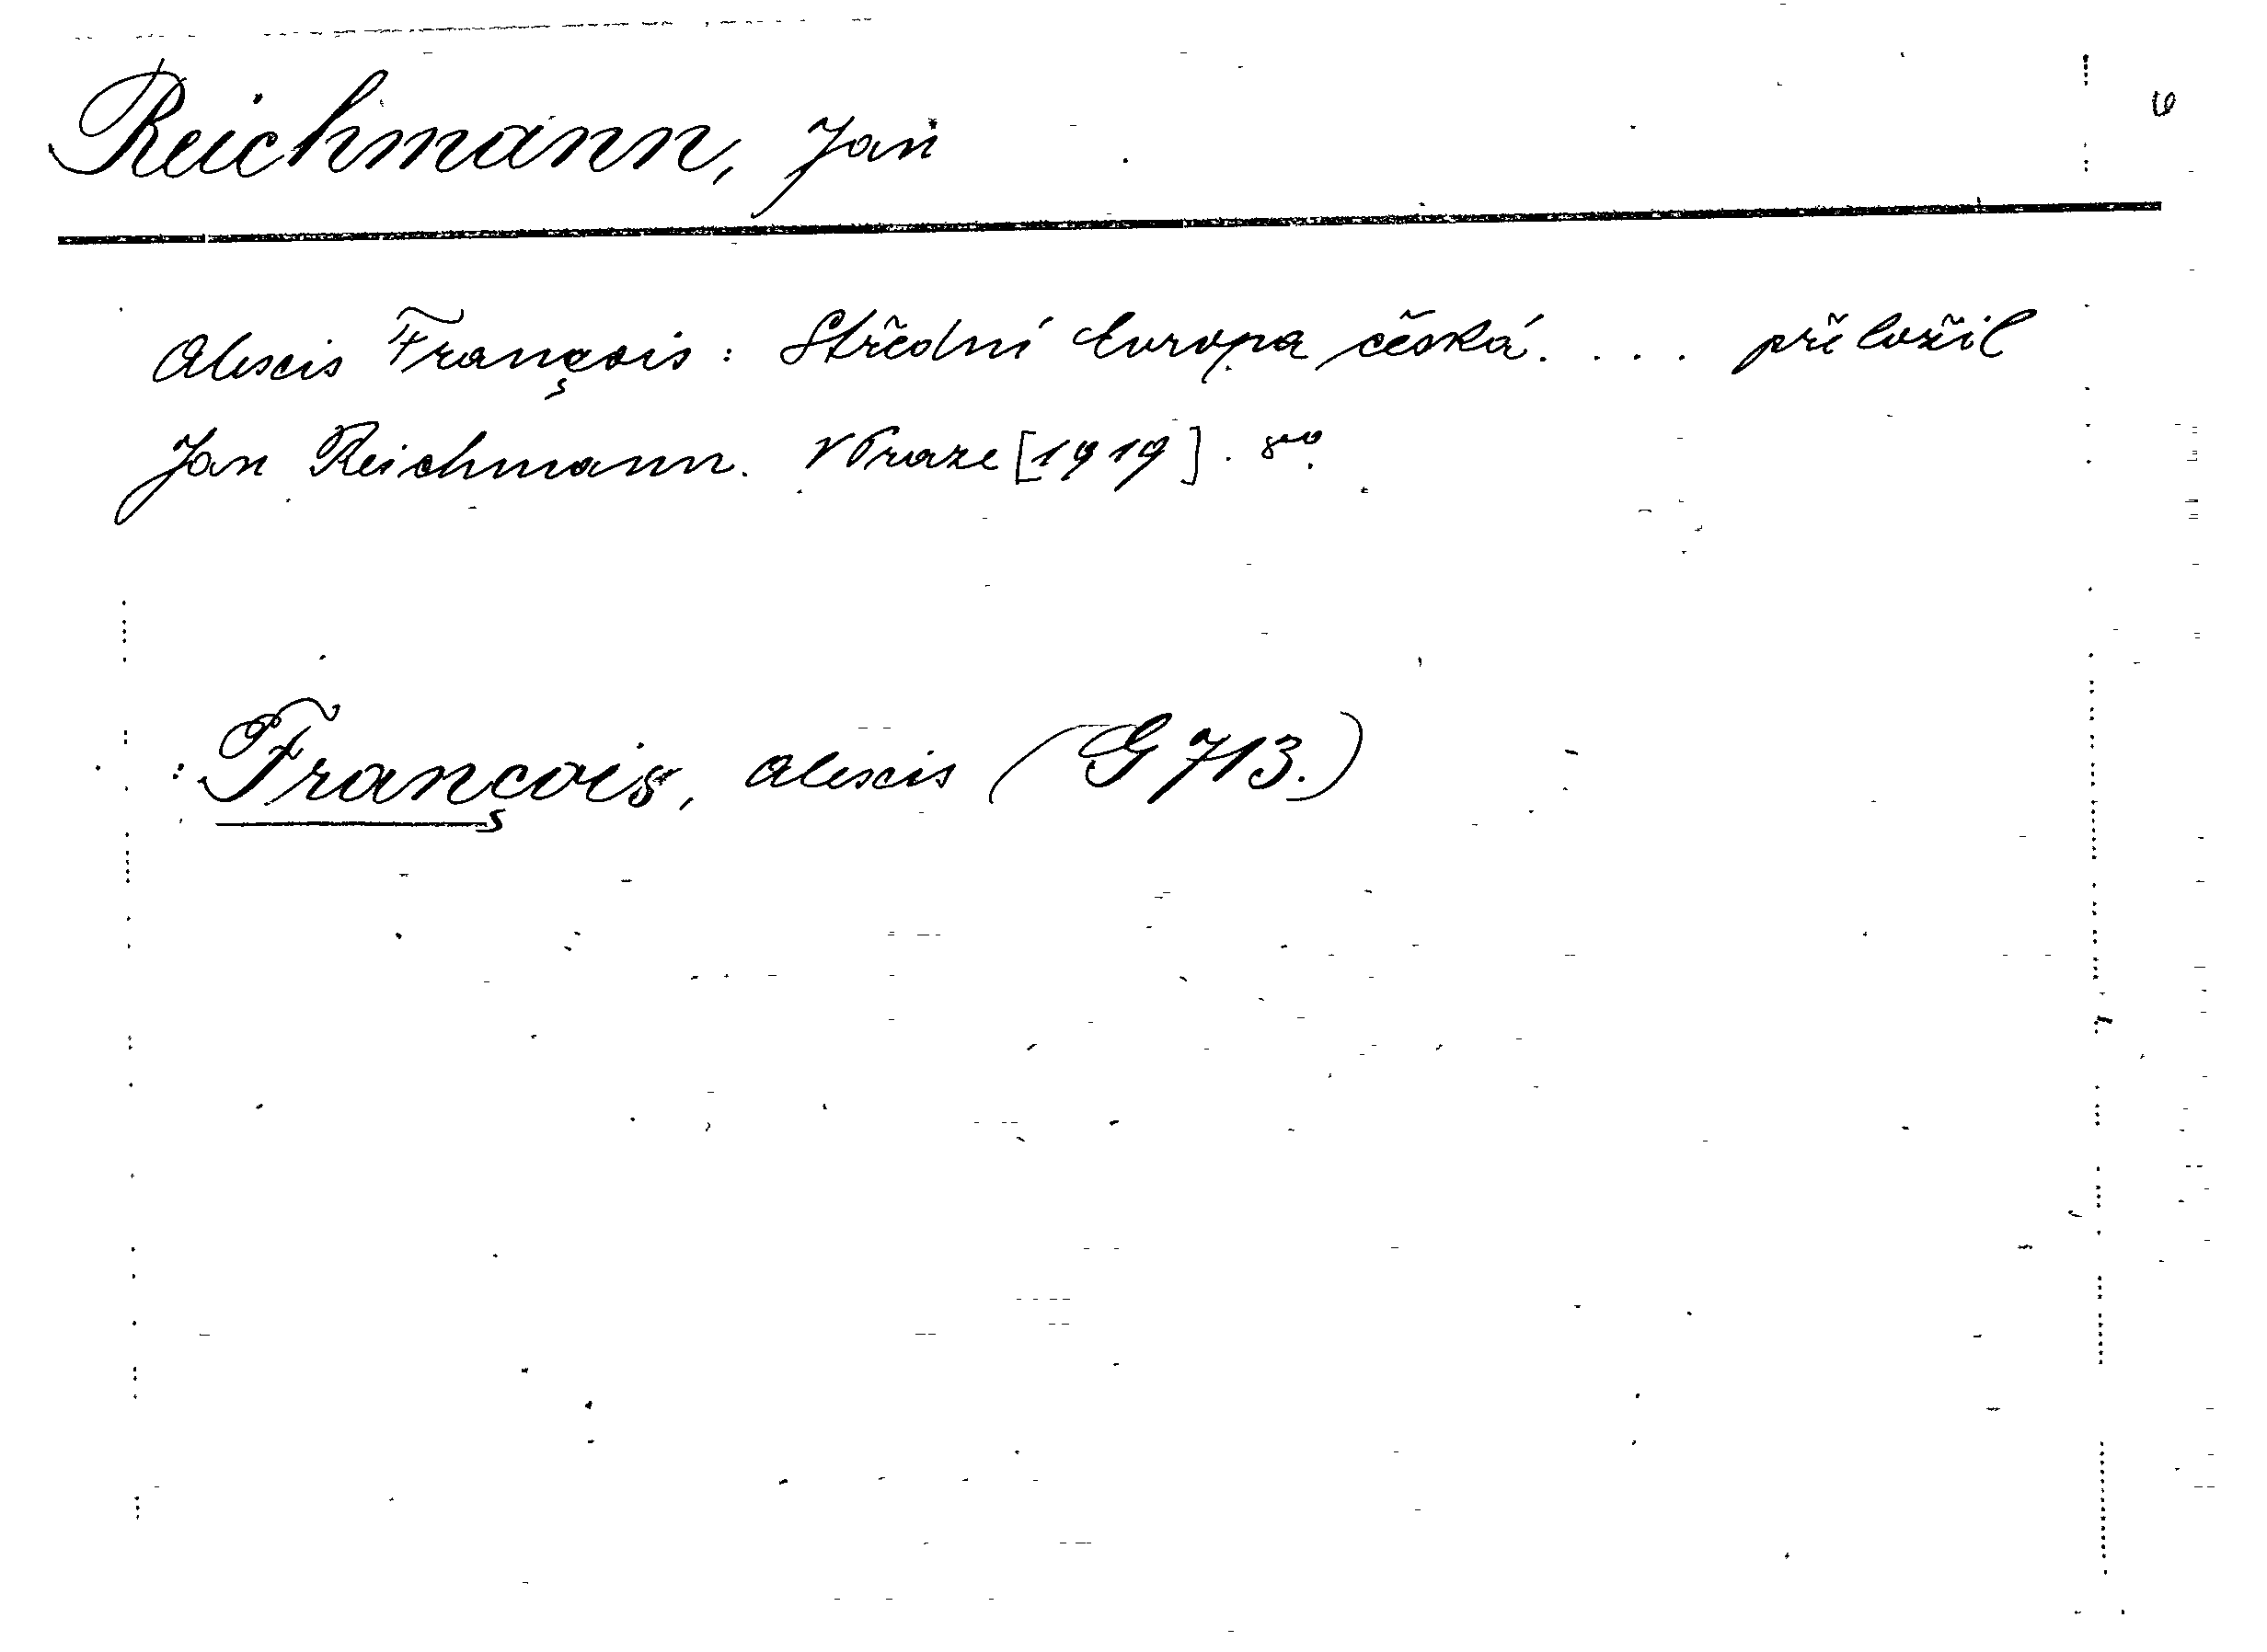 Reichmann, Jan
Alexis François: Střední Evropa česká. . . . přeložil
Jan Reichmann. V Praze [1919]. 8vo.
: François, Alexis (G 713.)